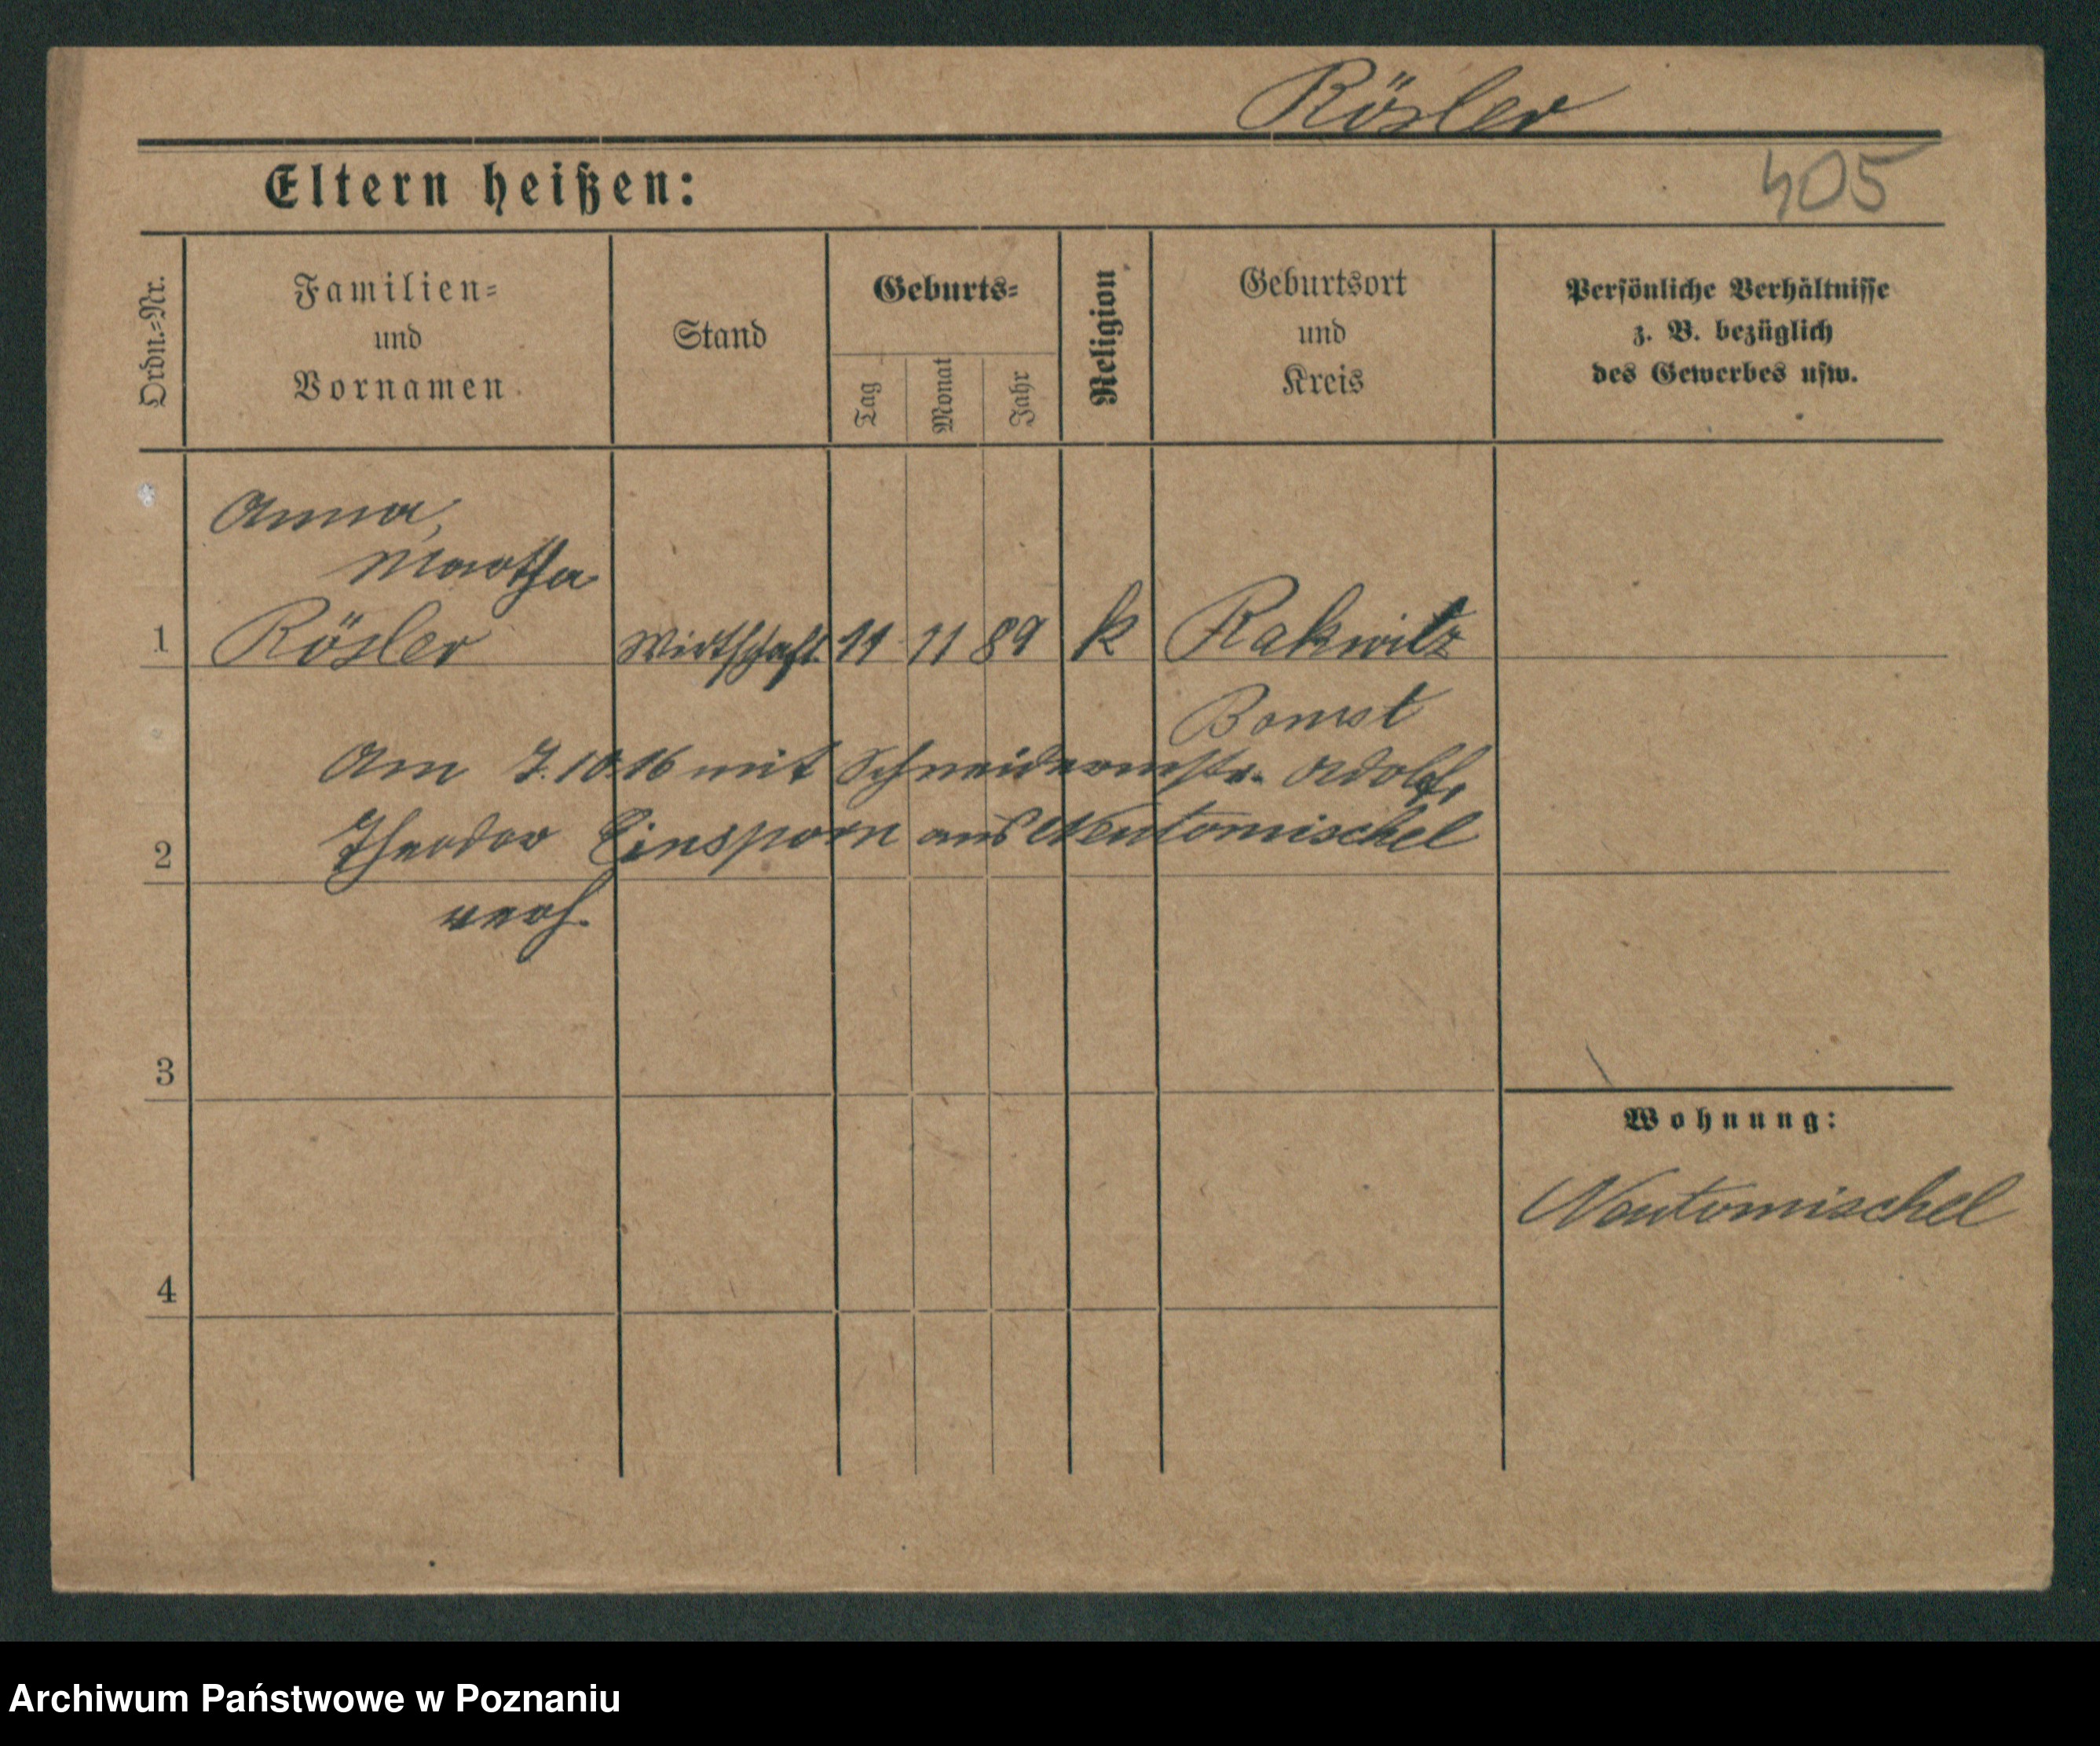 Rösler
405
Eltern heißen:
Ordn.=Nr.
Familien=
und
Vornamen
Stand
Geburts=
Tag
Monat
Jahr
Religion
Geburtsort
und
Kreis
Persönliche Verhältnisse
z. B. bezüglich
des Gewerbes usw.
Anna,
Martha
1 Rösler Wirtschaft. 11 11 89 k Rakwitz
Bomst
Am 7.10.16 mit Schneidermstr. Adolf,
2 Theodor Einsporn aus Neutomischel
verh.
3
Wohnung:
Neutomischel
4
Archiwum Państwowe w Poznaniu